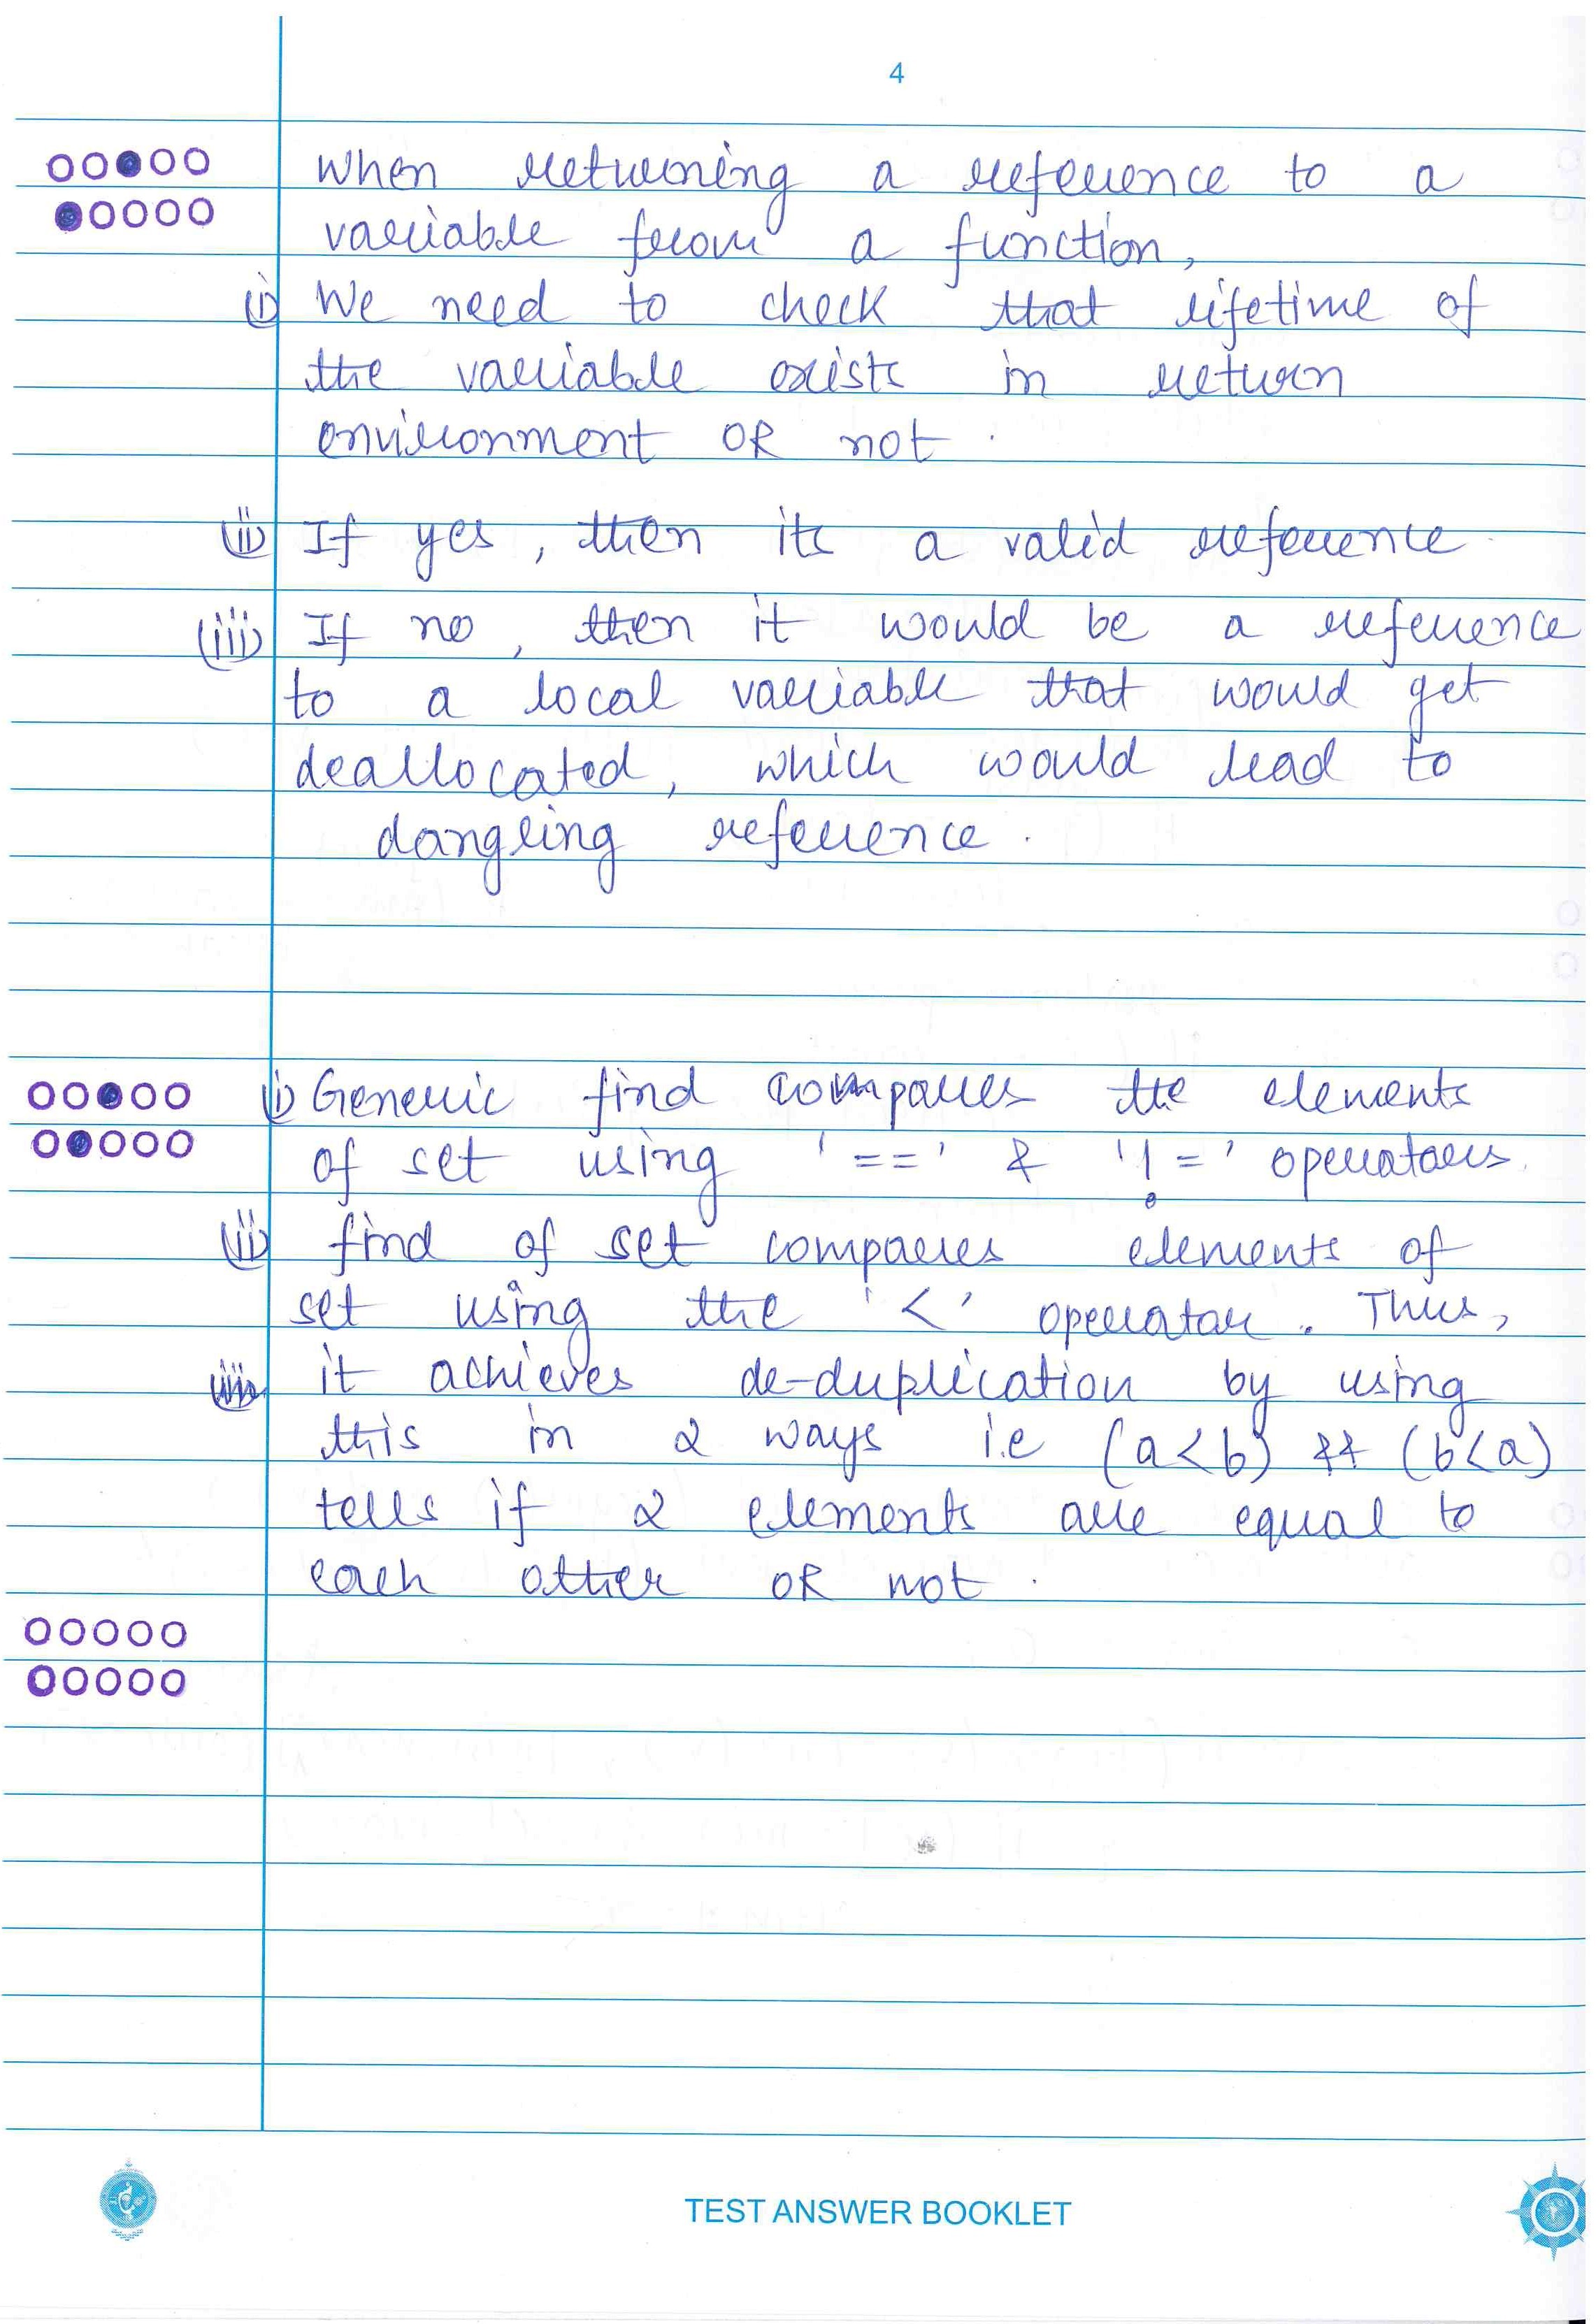 4
When returning a reference to a
variable from a function,
(i) We need to check that lifetime of
the variable exists in return
environment OR not.
(ii) If yes, then its a valid reference
(iii) If no, then it would be a reference
to a local variable that would get
deallocated, which would lead to
dangling reference.
(i) Generic find compares the elements
of set using '==' & '!=' operators.
(ii) find of set compares elements of
set using the '<' operator. Thus,
it achieves de-duplication by using
this in 2 ways i.e (a<b) && (b<a)
tells if 2 elements are equal to
each other OR not.
TEST ANSWER BOOKLET